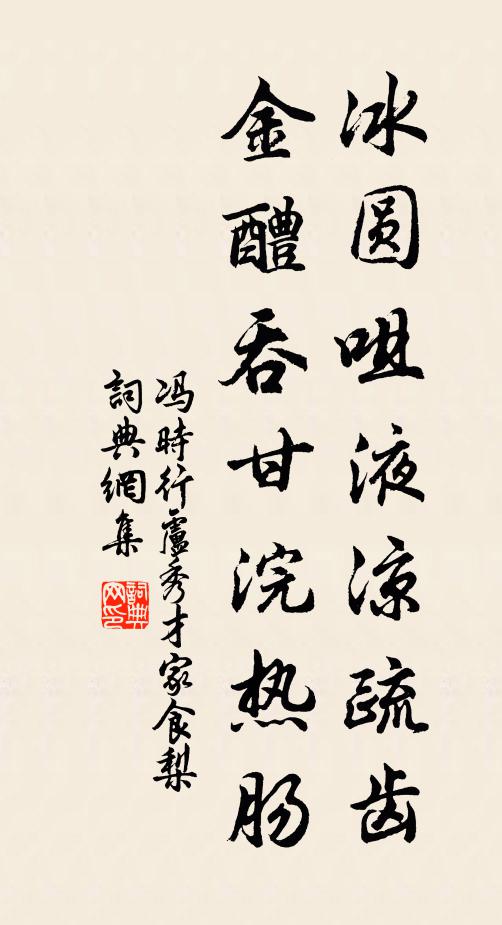 冰圆咀液凉疏齿
金醴吞甘浣热肠
冯時行盧秀才家食梨
詞典網集
詞典网印